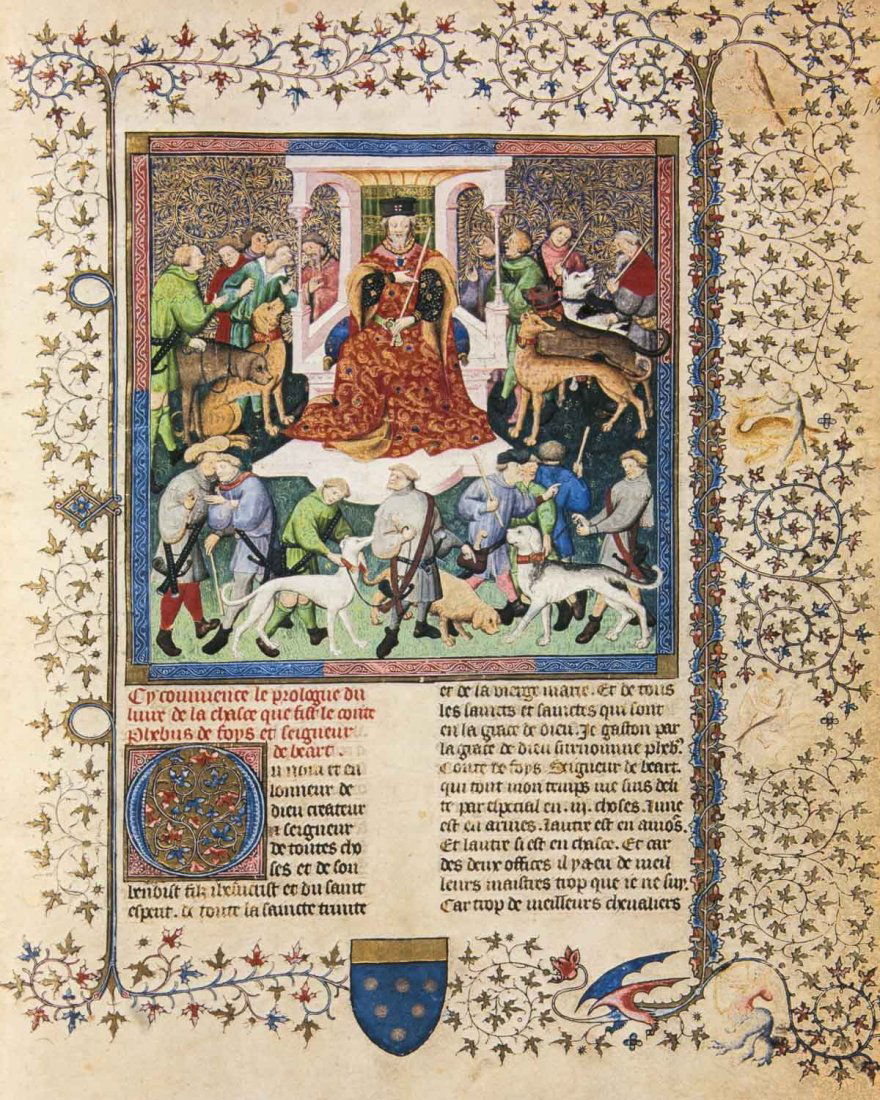 Cy commence le prologue du
liure de la chasce que fist le conte
phebus de foys et seigneur
de beart.
O
u nom et en
lonneur de
dieu createur
& seigneur
de toutes cho
ses et de son
benoist filz ihesucrist et du saint
esperit. de toute la saincte trinite
et de la vierge marie. Et de tous
les saincts et sainctes qui sont
en la grace de dieu. Je gaston par
la grace de dieu surnomme phebꝰ.
Conte de foys. Seigneur de beart.
qui tout mon temps me suis deli
te par especial en .iij. choses. lune
est en armes. lautre est en amōs.
Et lautre si est en chasce. Et car
des deux offices il y a eu de meil
leurs maistres trop que ie ne suy.
Car trop de meilleurs cheualiers